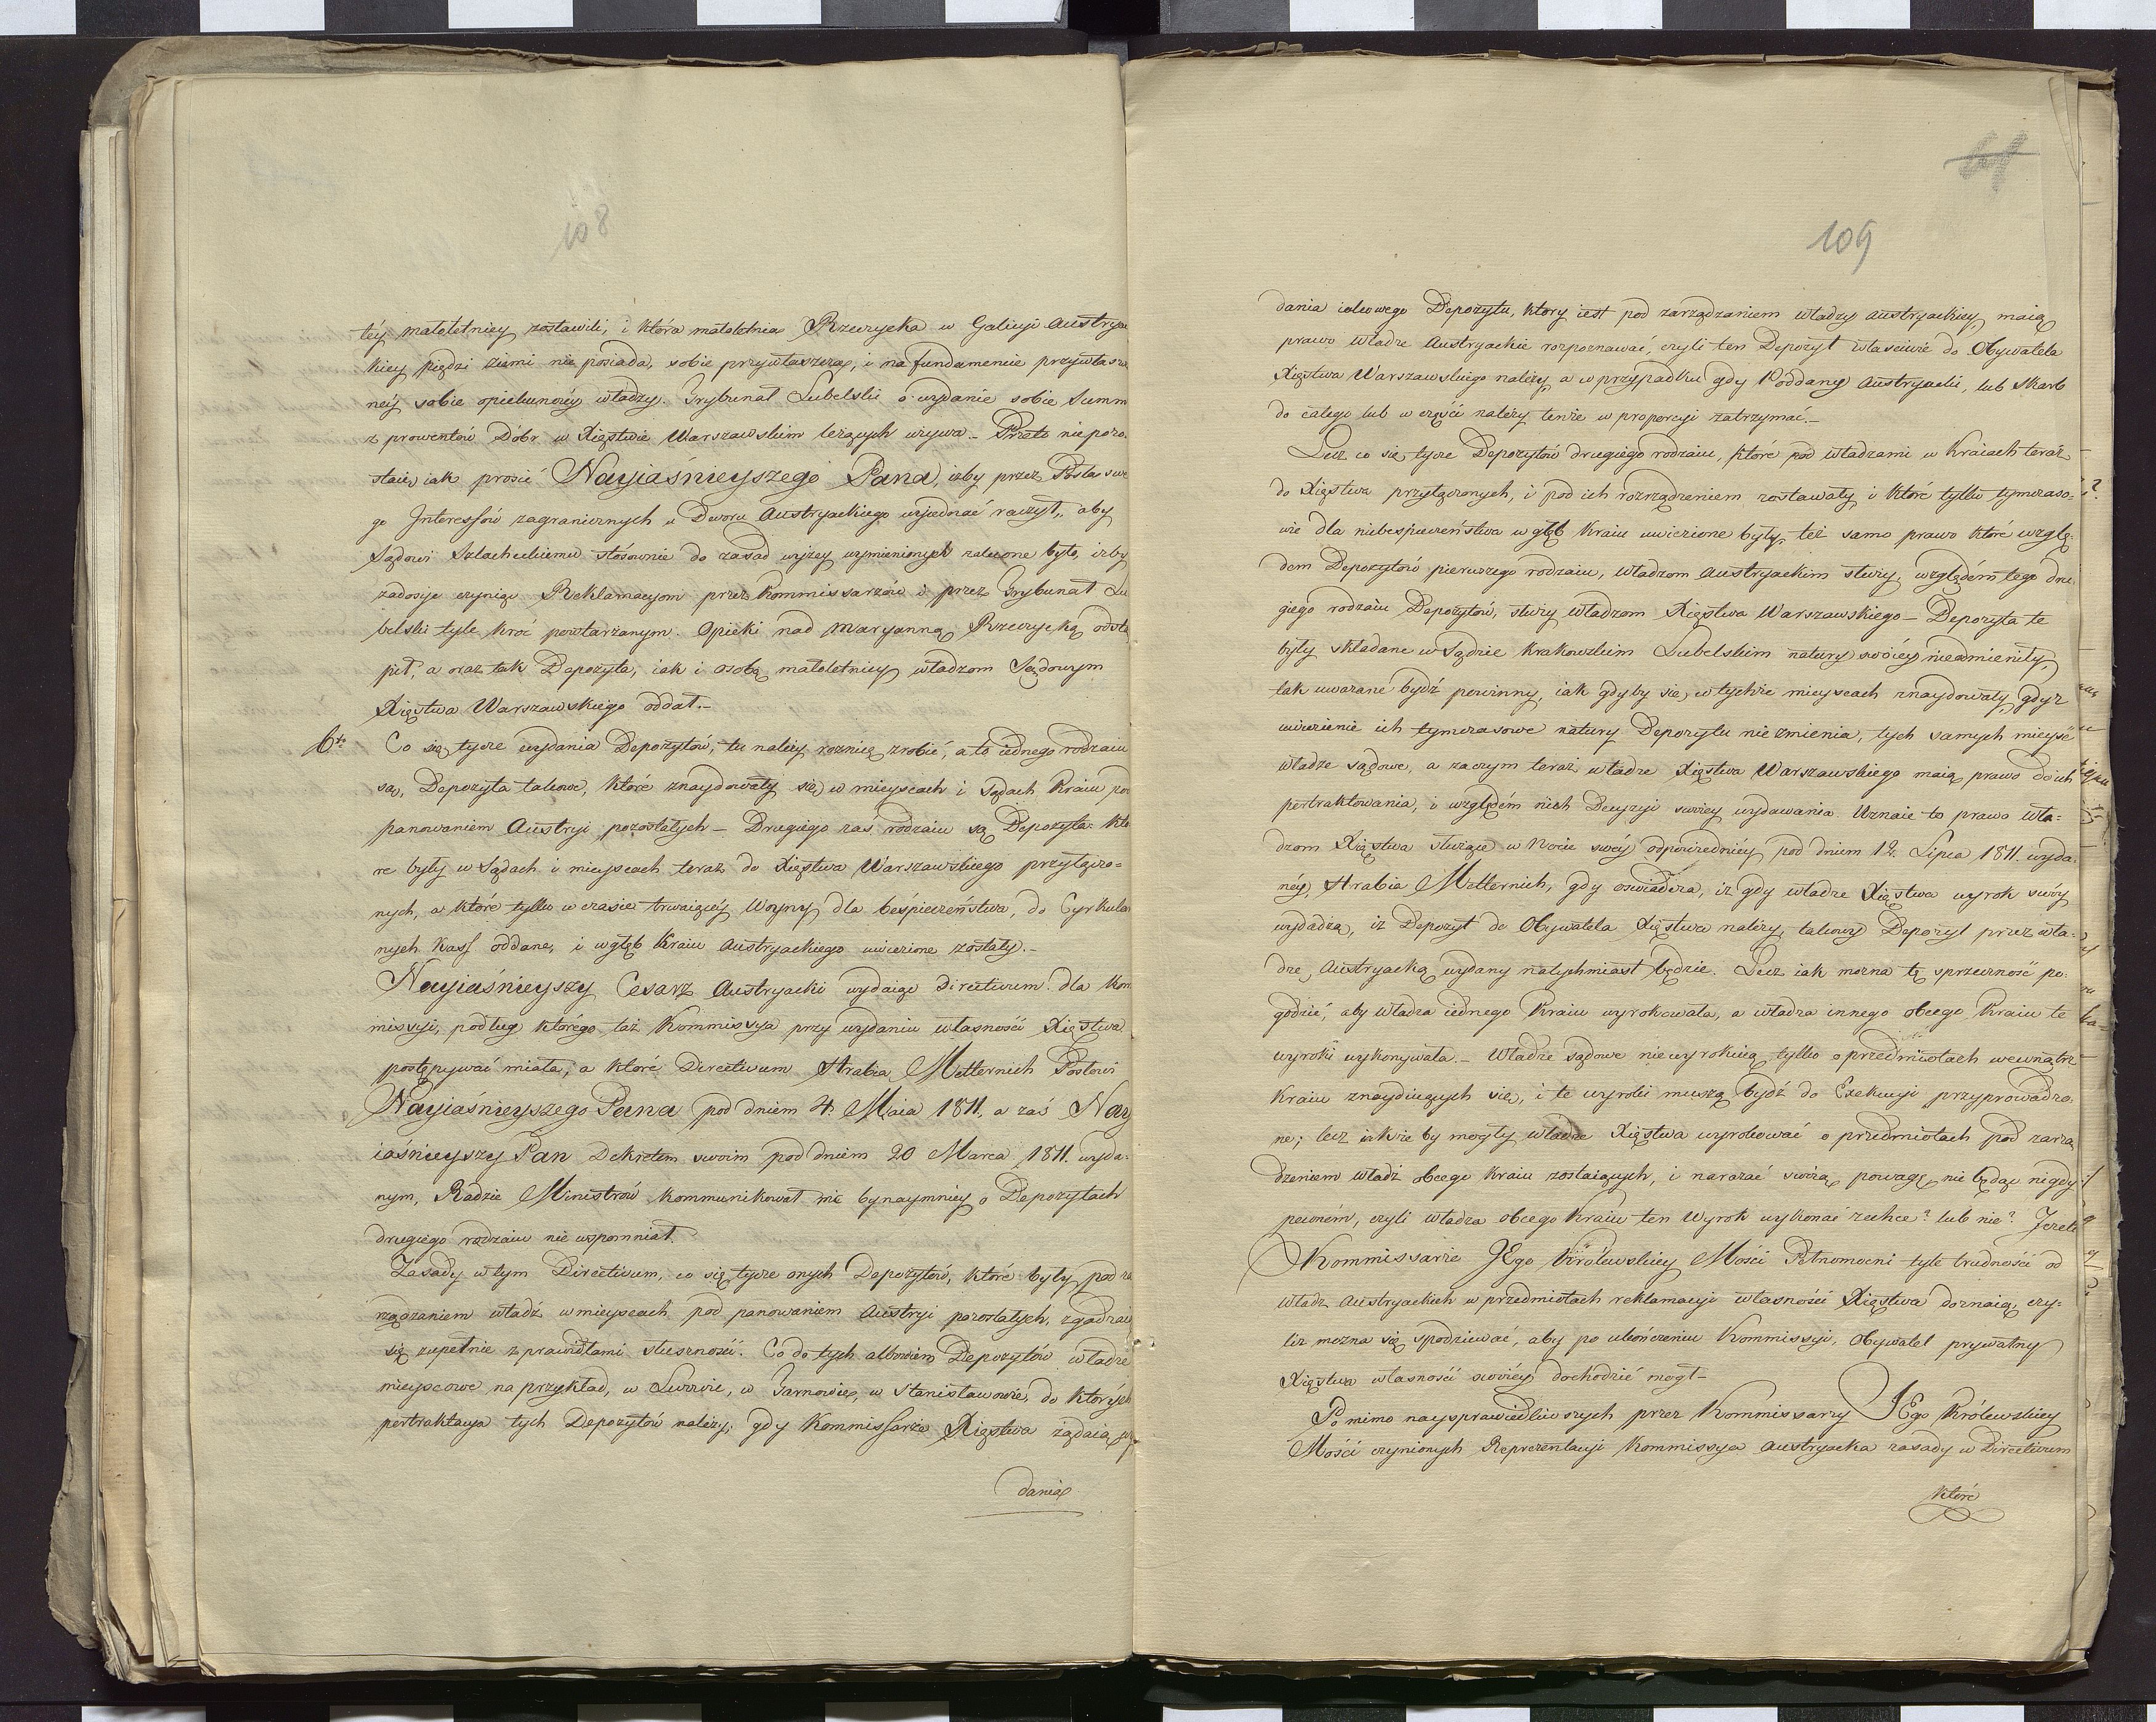 108
téy małoletniey zostawili, i która małoletnia Rzewuska w Galicyi Austrya
kiey piędzi ziemi nie posiada, sobie przywłaszcza, i na fundamencie przywłasz
néy sobie opiekunczéy władzy. Trybunał Lubelski o wydanie sobie Summ
z prowentów Dóbr w Xięstwie Warszawskim leżących wzywa. – Przeto niepozo
staie, iak prosić Nayiaśnieyszego Pana, iżby przez Posła swe
go Interessów zagranicznych u Dworu Austryackiego wyiednać raczył, aby
Sądowi Szlacheckiemu stósownie do zasad wyżey wymienionych zalecone było, iżby
zadosyć czyniąc Reklamacyom przez Kommissarzów i przez Trybunał Lu
belski tyle kroć powtarzanym. Opieki nad Maryanną Rzewuską odstą
pił, a oraz tak Depozyta, iak i osobę małoletniey władzom Sądowym
Xięstwa Warszawskiego oddał. –
6to Co się tycze wydania Depozytów, tu należy roznicę zrobić, a to iednego rodzaiu
są, Depozyta takowe, które znaydowały się w mieyscach i Sądach Kraiu pod
panowaniem Austryi pozostałych – Drugiego zaś rodzaiu są Depozyta któ
re były w Sądach i mieyscach teraz do Xięstwa Warszawskiego przyłączo=
nych, a które tylko w czasie trwaiącéy Woyny dla bespieczeństwa, do Cyrkular
nych Kass oddane, i w głąb Kraiu Austryackiego uwiezione zostały. –
Nayiaśnieyszy Cesarz Austryacki wydaiąc Directivum dla Kom
missyi, podług którego taż Kommissya przy wydaniu własności Xięstwa
postępywać miała, a które Directivum Hrabia Metternich Posłowi
Nayiaśnieyszego Pana pod dniem 4. Maia 1811, a zaś Nay
iaśnieyszy Pan Dekretem swoim pod dniem 20 Marca 1811. wyda=
nym, Radzie Ministrów kommunikował nic bynaymniey o Depozytach
drugiego rodzaiu nie wspomniał.
Zasady w tym Directivum, co się tycze onych Depozytów, które były pod za
rządzaniem władz w mieyscach pod panowaniem Austryi pozostałych, zgadzaią
się zupełnie z prawidłami słuszności. Co do tych albowiem Depozytów władze
mieyscowe na przykład, w Lwowie, w Tarnowie, w Stanisławowie, do których
pertraktacya tych Depozytów należy, gdy Kommissarze Xięstwa żądaią wy
dania
109
dania iakowego Depozytu, ktory iest pod zarządzaniem władzy austryackiey, maią
prawo władze Austryackie rozpoznawać, czyli ten Depozyt właściwie do Obywatela
Xięstwa Warszawskiego należy, a w przypadku gdy Poddany Austryacki, lub Skarb
do całego lub w części należy tenże w proporcyi zatrzymać. –
Lecz co się tycze Depozytów drugiego rodzaiu, które pod władzami w Kraiach teraz
do Xięstwa przyłączonych, i pod ich rozrządzeniem zostawały, i które tylko tymczaso=
wie dla niebespieczeństwa w głąb Kraiu uwiezione były, też samo prawo które wzglę=
dem Depozytów pierwszego rodzaiu, władzom Austryackim służy, względem tego dru
giego rodzaiu Depozytów, służy władzom Xięstwa Warszawskiego – Depozyta te
były składane w Sądzie Krakowskim Lubelskim natury swoiéy nieodmieniły,
tak uważane bydź powinny, iak gdyby się, w tychże mieyscach znaydowały, gdyż
uwiezienie ich tymczasowe natury Depozytu nie zmienia, tych samych mieysc
władze sądowe, a zaczym teraz władze Xięstwa Warszawskiego maią prawo do ich
pertraktowania, i względem nich Decyzyi swoiey wydawania. Uznaie to prawo wła=
dzom Xięstwa służące w Nocie swéy odpowiedniéy pod dniem 12. Lipca 1811. wyda=
néy, Hrabia Metternich, gdy oświadcza, iż gdy władze Xięstwa wyrok swóy
wydadzą, iż Depozyt do Obywatela Xięstwa należy, takowy Depozyt przez wła=
dzę Austryacką wydany natychmiast będzie. Lecz iak można tę sprzeczność po=
godzić, aby władza iednego Kraiu wyrokowała, a władza innego obcego Kraiu te
wyroki wykonywała. – Władze sądowe nie wyrokuią, tylko o przedmiotach wewnątrz
Kraiu znayduiących się, i te wyroki muszą bydź do Exekucyi przyprowadzo=
ne; lecz iakże by mogły władze Xięstwa wyrokować o przedmiotach pod zarzą
dzeniem władz obcego Kraiu zostaiących, i narażać swoią powagę nie będąc nigdy
pewném, czyli władza obcego Kraiu ten Wyrok wykonać zechce? lub nie? Jeżeli
Kommissarze JEgo Królewskiey Mości Pełnomocni tyle trudności od
władz Austryackich w przedmiotach reklamacyi własności Xięstwa doznaią, czy=
liż można się spodziewać, aby po ukończeniu Kommissyi, Obywatel prywatny
Xięstwa własności swoiéy dochodzić mógł –
Po mimo naysprawiedliwszych przez Kommissarzy JEgo Królewskiey
Mości czynionych Reprezentacyi Kommissya Austryacka zasady w Directivum
które